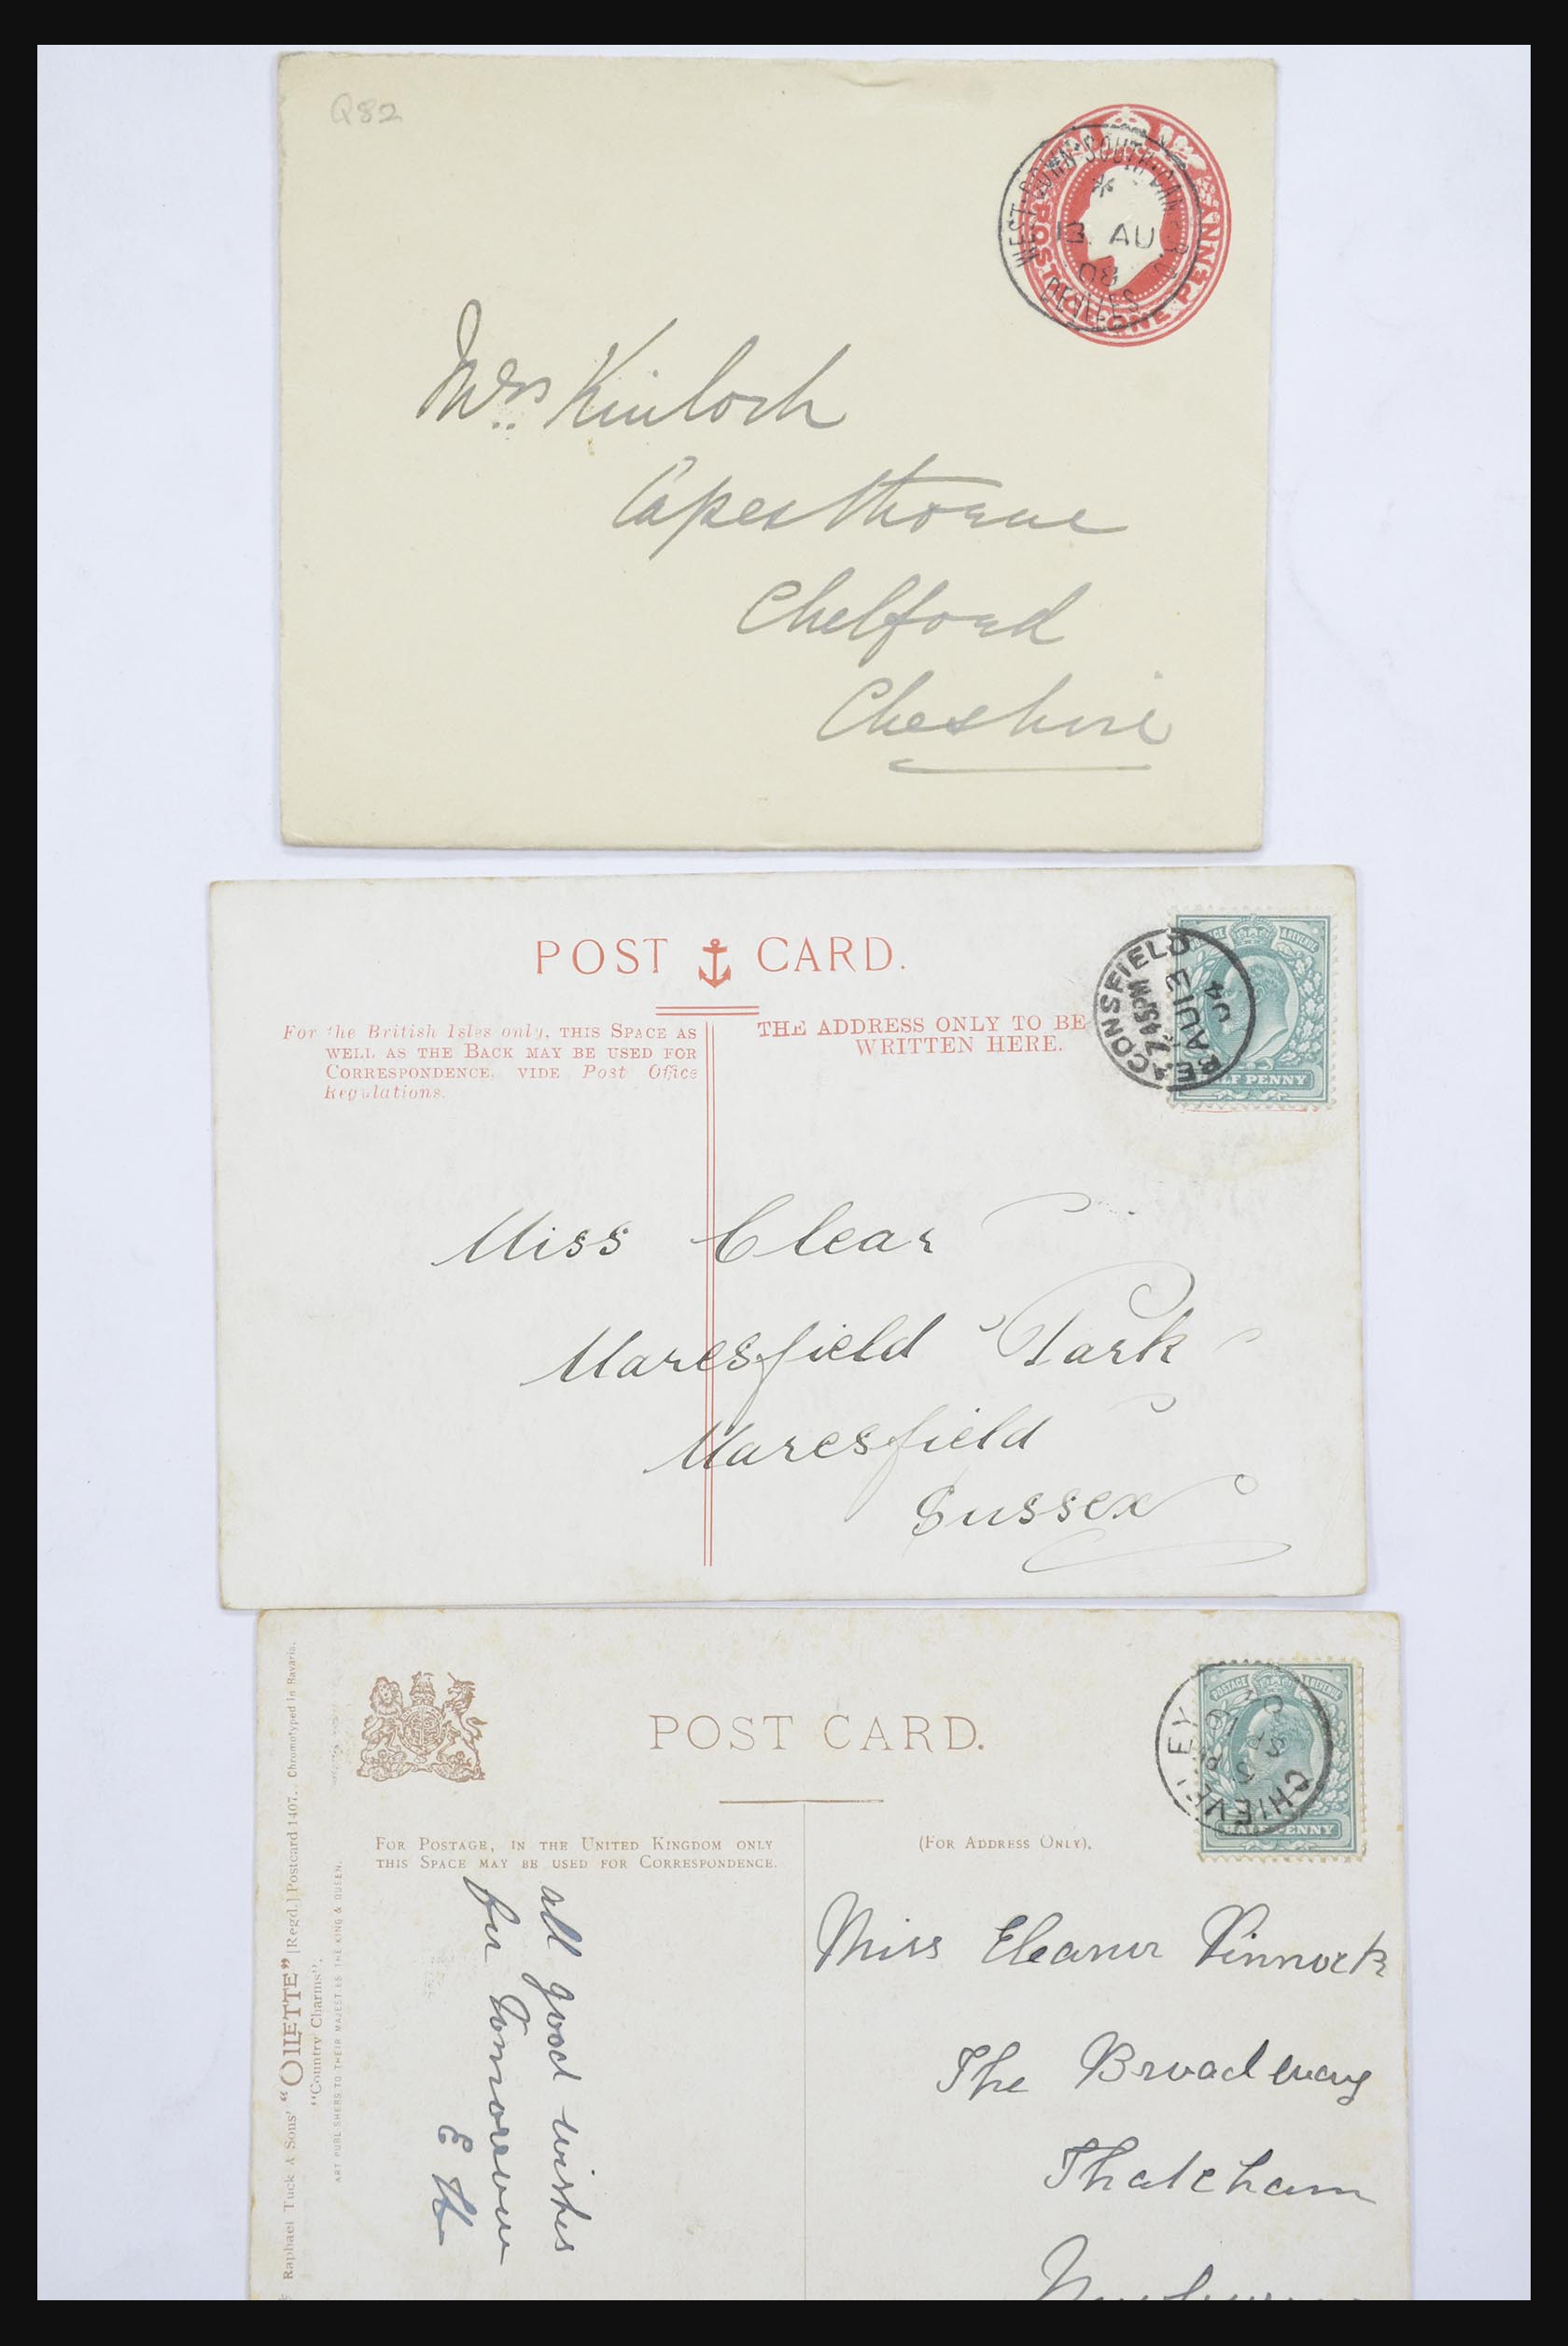 Q82
WEST DOWN SOUTH CAMP
*
13 AU
08
DEVIZES
POSTAGE ONE PENNY
Mrs Kinloch
Capesthorne
Chelford
Cheshire
POST CARD.
For the British Isles only, THIS SPACE AS
WELL AS THE BACK MAY BE USED FOR
CORRESPONDENCE, VIDE Post Office
Regulations.
THE ADDRESS ONLY TO BE
WRITTEN HERE.
BEACONSFIELD
7.45PM
AU 13
04
POSTAGE & REVENUE
HALF PENNY
Miss Clear
Maresfield Park
Maresfield
Sussex
POST CARD.
FOR POSTAGE, IN THE UNITED KINGDOM ONLY
THIS SPACE MAY BE USED FOR CORRESPONDENCE.
(FOR ADDRESS ONLY).
CHIEVELEY
SP 5
POSTAGE & REVENUE
HALF PENNY
all good wishes
for Tomorrow
E H
Miss Eleanor Pinnock
The Broadway
Thatcham
Raphael Tuck & Sons' "OILETTE" [Regd.] Postcard 1407. Chromotyped in Bavaria.
"Country Charms".
ART PUBLISHERS TO THEIR MAJESTIES THE KING & QUEEN.